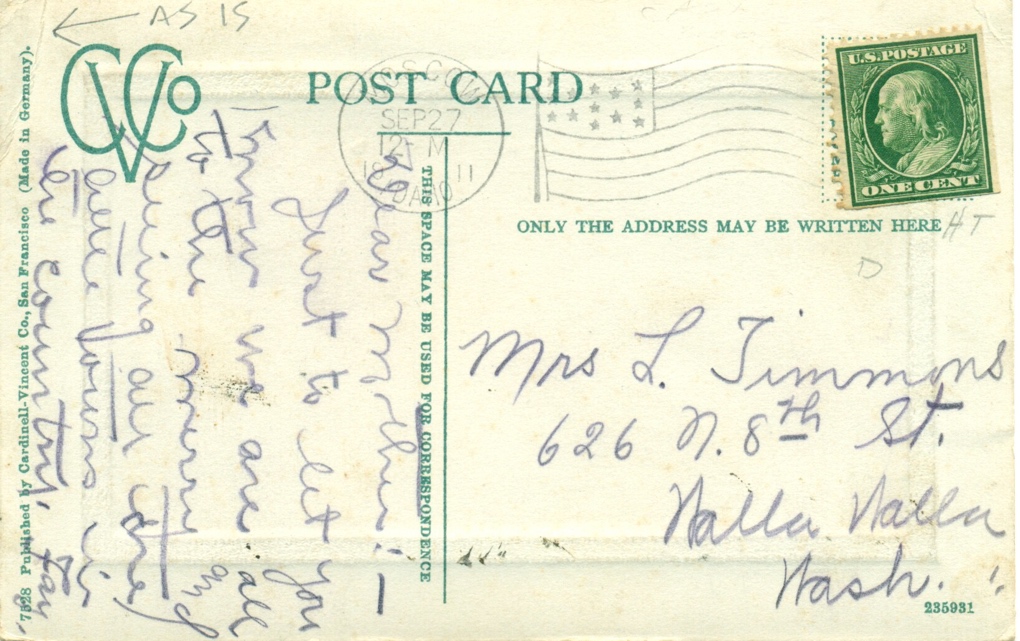 AS IS
CVCo
POST CARD
SEP 27
12 M
1911
IDAHO
U.S. POSTAGE
ONE CENT
ONLY THE ADDRESS MAY BE WRITTEN HERE
HT
D
Mrs L. Timmons
626 N. 8th St.
Walla Walla
Wash.
235931
THIS SPACE MAY BE USED FOR CORRESPONDENCE
Dear Mother:—
Just to let you
know we are all
to the merry and
seeing all the
little towns in
the country. Fay.
7528 Published by Cardinell-Vincent Co., San Francisco (Made in Germany).